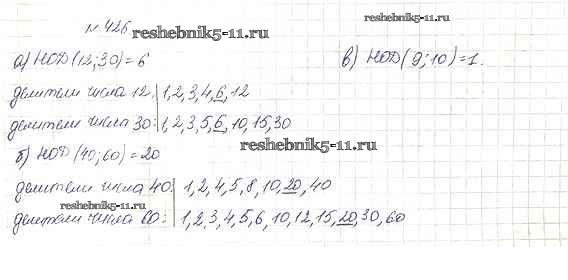 № 426
reshebnik5-11.ru
reshebnik5-11.ru
а) НОД(12;30)=6
в) НОД(9;10)=1.
делители числа 12: 1,2,3,4,6,12
делители числа 30: 1,2,3,5,6,10,15,30
reshebnik5-11.ru
б) НОД(40;60)=20
делители числа 40: 1,2,4,5,8,10,20,40
reshebnik5-11.ru
делители числа 60: 1,2,3,4,5,6,10,12,15,20,30,60